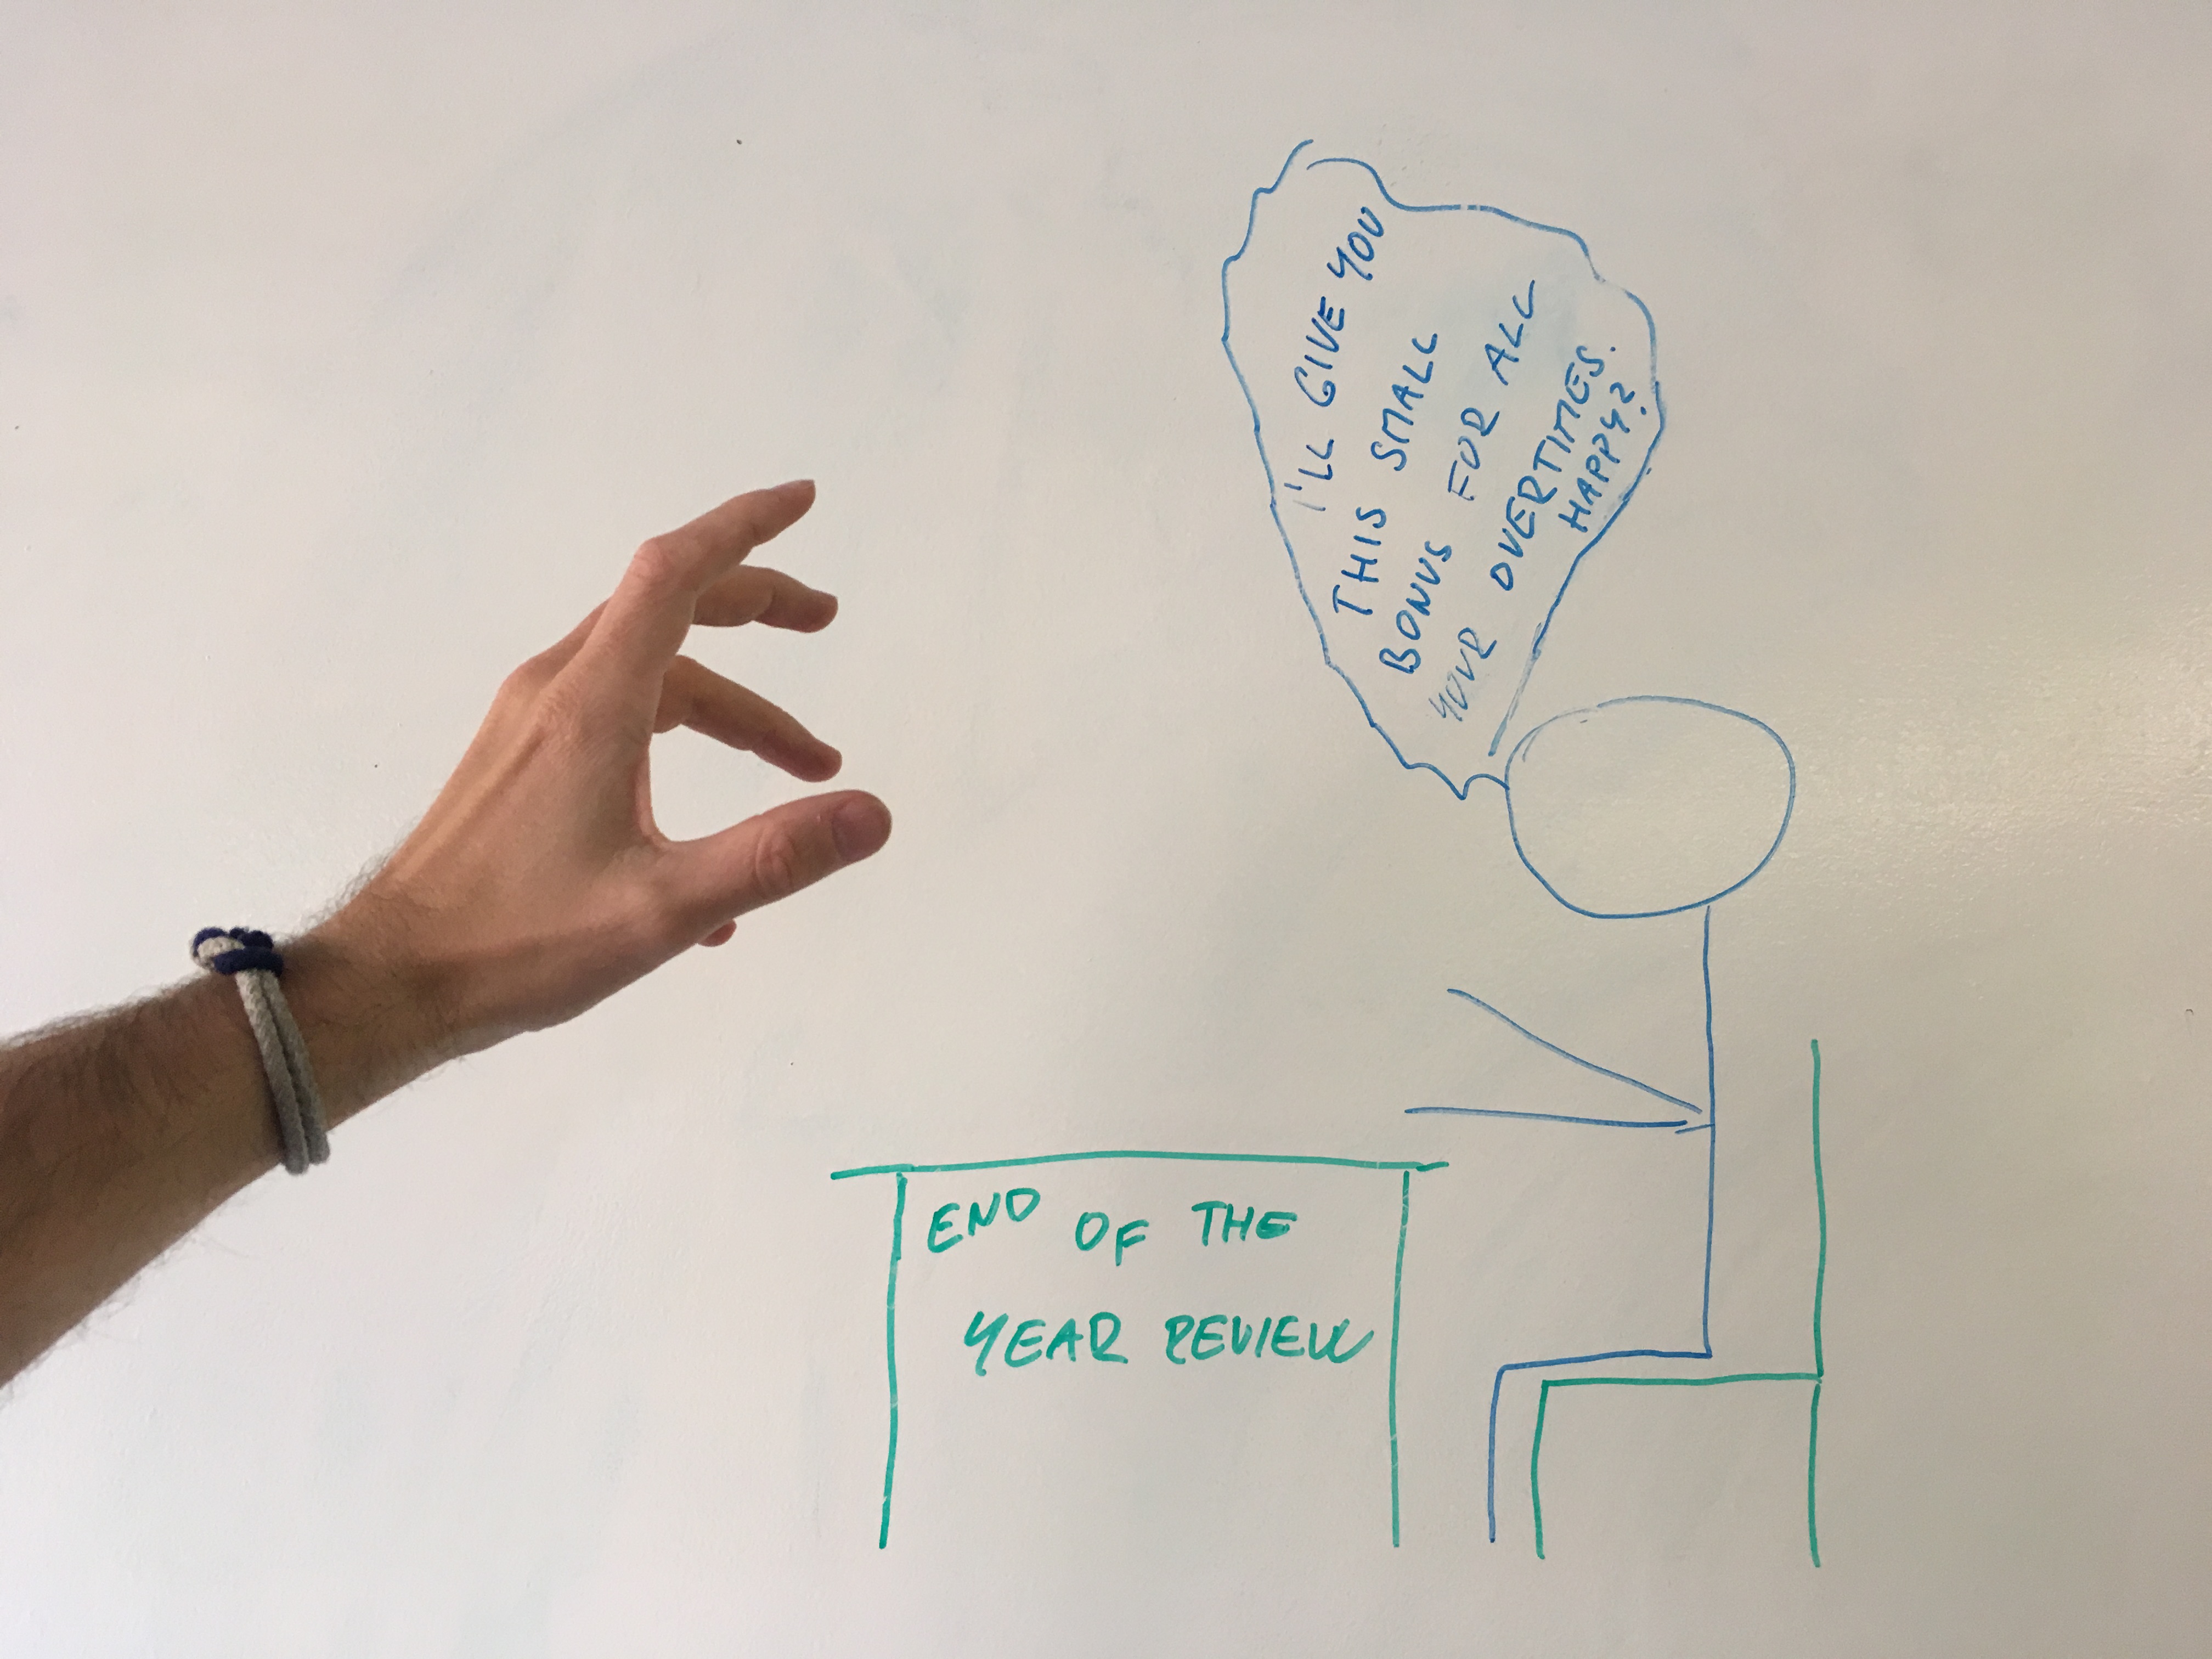 I'LL GIVE YOU
THIS SMALL
BONUS FOR ALL
YOUR OVERTIMES.
HAPPY?
END OF THE
YEAR REVIEW